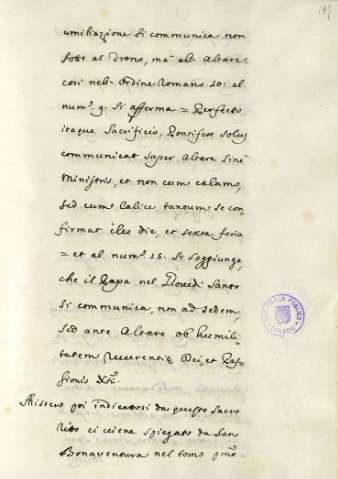 149
umiliazione si communica non
al Trono, mà all' Altare.
così nell' Ordine Romano 10: al
num.º 9. si afferma = Perfecto
itaque Sacrificio, Pontifex solus
communicat super Altare sine
Ministris, et non cum calamo,
sed cum Calice tantum se con
firmat illo die, et sexta feria
= et al num.º 15. Se soggiunge,
che il Papa nel Giovedì Santo
si communica, non ad sedem,
sed ante Altare ob humili
tatem reverentiæ Dei, et Pas=
sionis Xti.
Mistero poi indicatosi da questo Sacro
Rito ci viene spiegato da San
Bonaventura nel tomo pmo